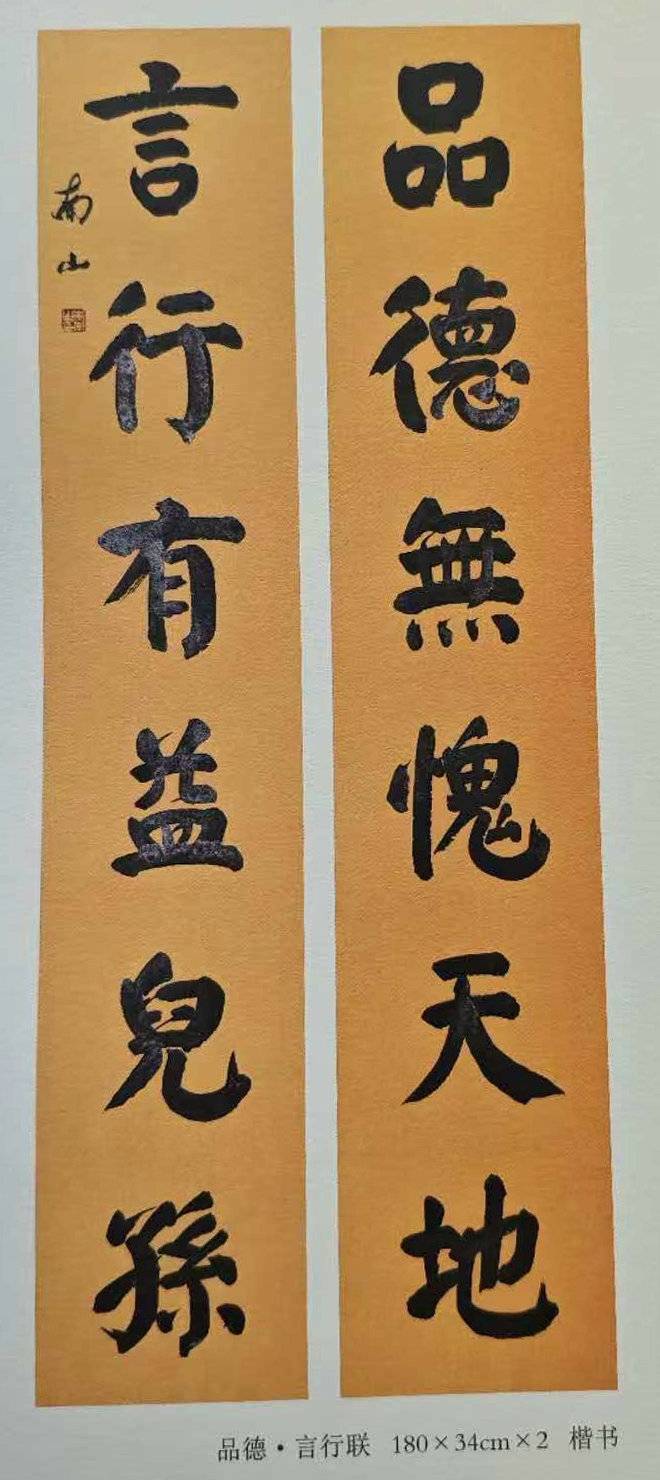 品德無愧天地
言行有益兒孫
南山
品德·言行联 180×34cm×2 楷书